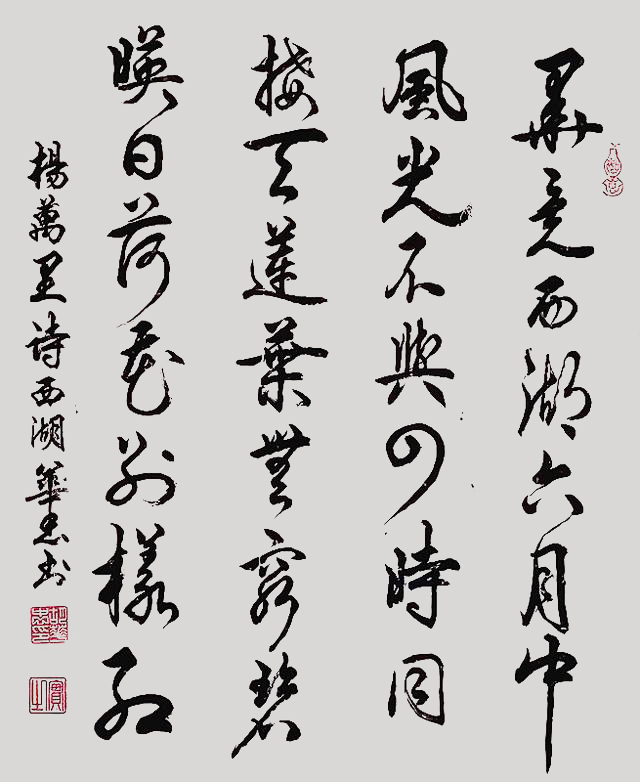 畢竟西湖六月中
風光不與四時同
接天蓮葉無窮碧
暎日荷花別樣紅
楊萬里诗西湖華忠书